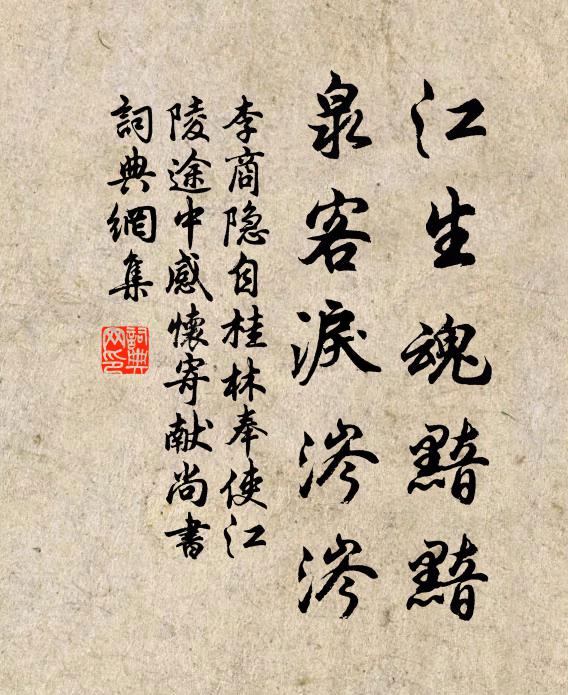 江生魂黯黯
泉客淚涔涔
李商隐自桂林奉使江
陵途中感懷寄献尚書
詞典網集
詞典網印